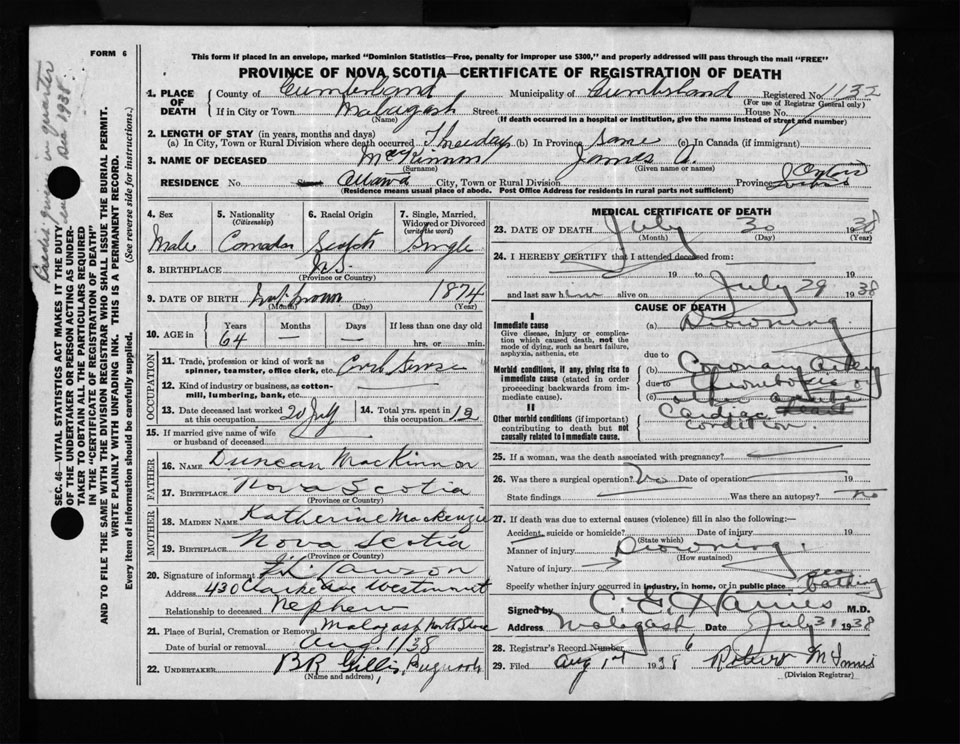 FORM 6
This form if placed in an envelope, marked "Dominion Statistics—Free, penalty for improper use $300," and properly addressed will pass through the mail "FREE"
PROVINCE OF NOVA SCOTIA—CERTIFICATE OF REGISTRATION OF DEATH
1. PLACE OF DEATH
County of Cumberland Municipality of Cumberland Registered No. 1132
(For use of Registrar General only)
If in City or Town Malagash Street House No.
(Name) (If death occurred in a hospital or institution, give the name instead of street and number)
2. LENGTH OF STAY (in years, months and days)
(a) In City, Town or Rural Division where death occurred Three days (b) In Province Same (c) In Canada (if immigrant)
3. NAME OF DECEASED McKinnon James A.
(Surname) (Given name or names)
RESIDENCE No. Street Ottawa City, Town or Rural Division Province
(Residence means usual place of abode. Post Office Address for residents in rural parts not sufficient)
4. Sex
Male
5. Nationality
(Citizenship)
6. Racial Origin
Scotch
7. Single, Married, Widowed or Divorced
(write the word)
Single
8. BIRTHPLACE N.S.
(Province or Country)
9. DATE OF BIRTH 1874
(Month) (Day) (Year)
10. AGE in Years Months Days If less than one day old
64 — — hrs. or min.
OCCUPATION
11. Trade, profession or kind of work as spinner, teamster, office clerk, etc.
12. Kind of industry or business, as cotton-mill, lumbering, bank, etc.
13. Date deceased last worked at this occupation 20 July
14. Total yrs. spent in this occupation 12
15. If married give name of wife or husband of deceased
FATHER
16. NAME Duncan MacKinnon
17. BIRTHPLACE Nova Scotia
(Province or Country)
MOTHER
18. MAIDEN NAME Katherine Mackenzie
19. BIRTHPLACE Nova Scotia
(Province or Country)
20. Signature of informant Lawson
Address 430 Clarke Ave Westmount
Relationship to deceased Nephew
21. Place of Burial, Cremation or Removal Malagash North Shore
Date of burial or removal Aug 1/38
22. UNDERTAKER B R Gillis, Pugwash
(Name and address)
MEDICAL CERTIFICATE OF DEATH
23. DATE OF DEATH July 30 1938
(Month) (Day) (Year)
24. I HEREBY CERTIFY that I attended deceased from:
19 to July 29 1938
and last saw him alive on 19
CAUSE OF DEATH
I
Immediate cause
Give disease, injury or complication which caused death, not the mode of dying, such as heart failure, asphyxia, asthenia, etc
(a) Drowning
due to
Morbid conditions, if any, giving rise to immediate cause (stated in order proceeding backwards from immediate cause).
(b) Coronary artery
due to
thrombosis or
(c) other acute
cardiac heart
condition.
II
Other morbid conditions (if important) contributing to death but not causally related to immediate cause.
25. If a woman, was the death associated with pregnancy?
26. Was there a surgical operation? No Date of operation 19
State findings Was there an autopsy? no
27. If death was due to external causes (violence) fill in also the following:—
Accident, suicide or homicide? Date of injury 19
(State which)
Manner of injury Drowning
(How sustained)
Nature of injury
Specify whether injury occurred in industry, in home, or in public place sea bathing
Signed by C. E. Harries M.D.
Address Malagash Date July 31 1938
28. Registrar's Record Number 6
29. Filed Aug 1st 1938
(Division Registrar)
SEC. 46—VITAL STATISTICS ACT MAKES IT THE DUTY OF THE UNDERTAKER OR PERSON ACTING AS UNDERTAKER TO OBTAIN ALL THE PARTICULARS REQUIRED IN THE "CERTIFICATE OF REGISTRATION OF DEATH"
AND TO FILE THE SAME WITH THE DIVISION REGISTRAR WHO SHALL ISSUE THE BURIAL PERMIT.
WRITE PLAINLY WITH UNFADING INK. THIS IS A PERMANENT RECORD.
Every item of information should be carefully supplied. (See reverse side for instructions.)